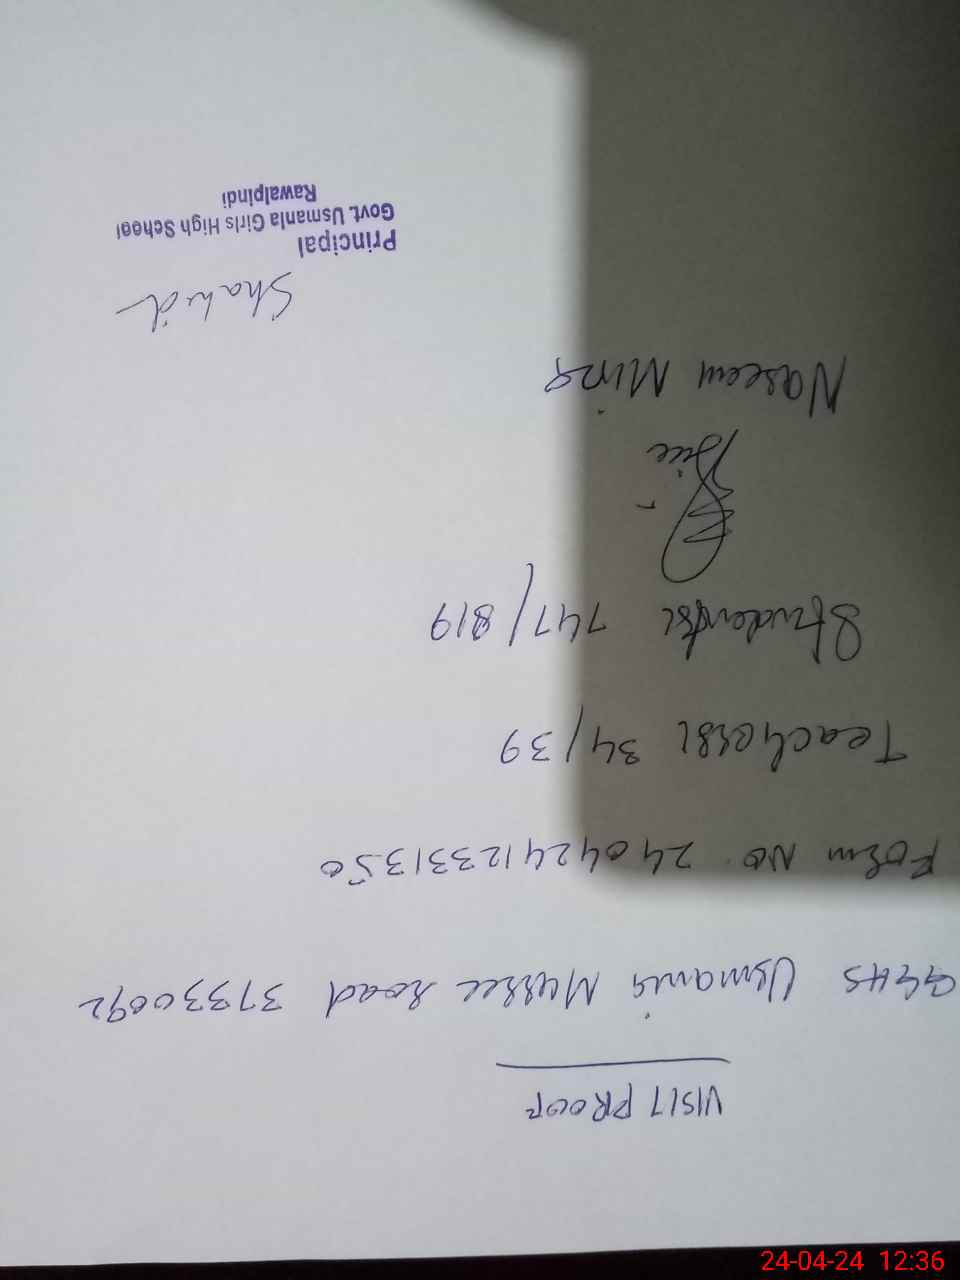 VISIT PROOF
GGHS Usmania Murree Road 37330092
Form No. 24042412331350
Teachers: 34/39
Students: 747/819
Naseem Mirza
Shahid
Principal
Govt. Usmania Girls High School
Rawalpindi
24-04-24 12:36